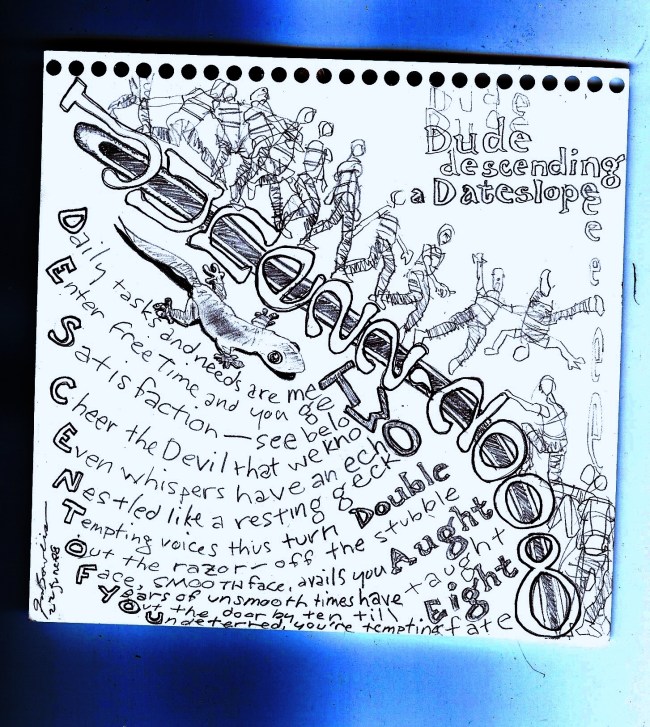 Dude
Dude
Dude
descending
a Dateslope
Daily tasks and needs are me
Enter free time and you ge
T
Satisfaction — see belo
Cheer the Devil that we kno
W
Even whispers have an ech
Nestled like a resting geck
O
Tempting voices thus turn Double
Out the razor - off the stubble
Face, smooth face, avails you Aught
Years of unsmooth times have taught
Out the door by ten till Eight
Undeterred, you're tempting fate